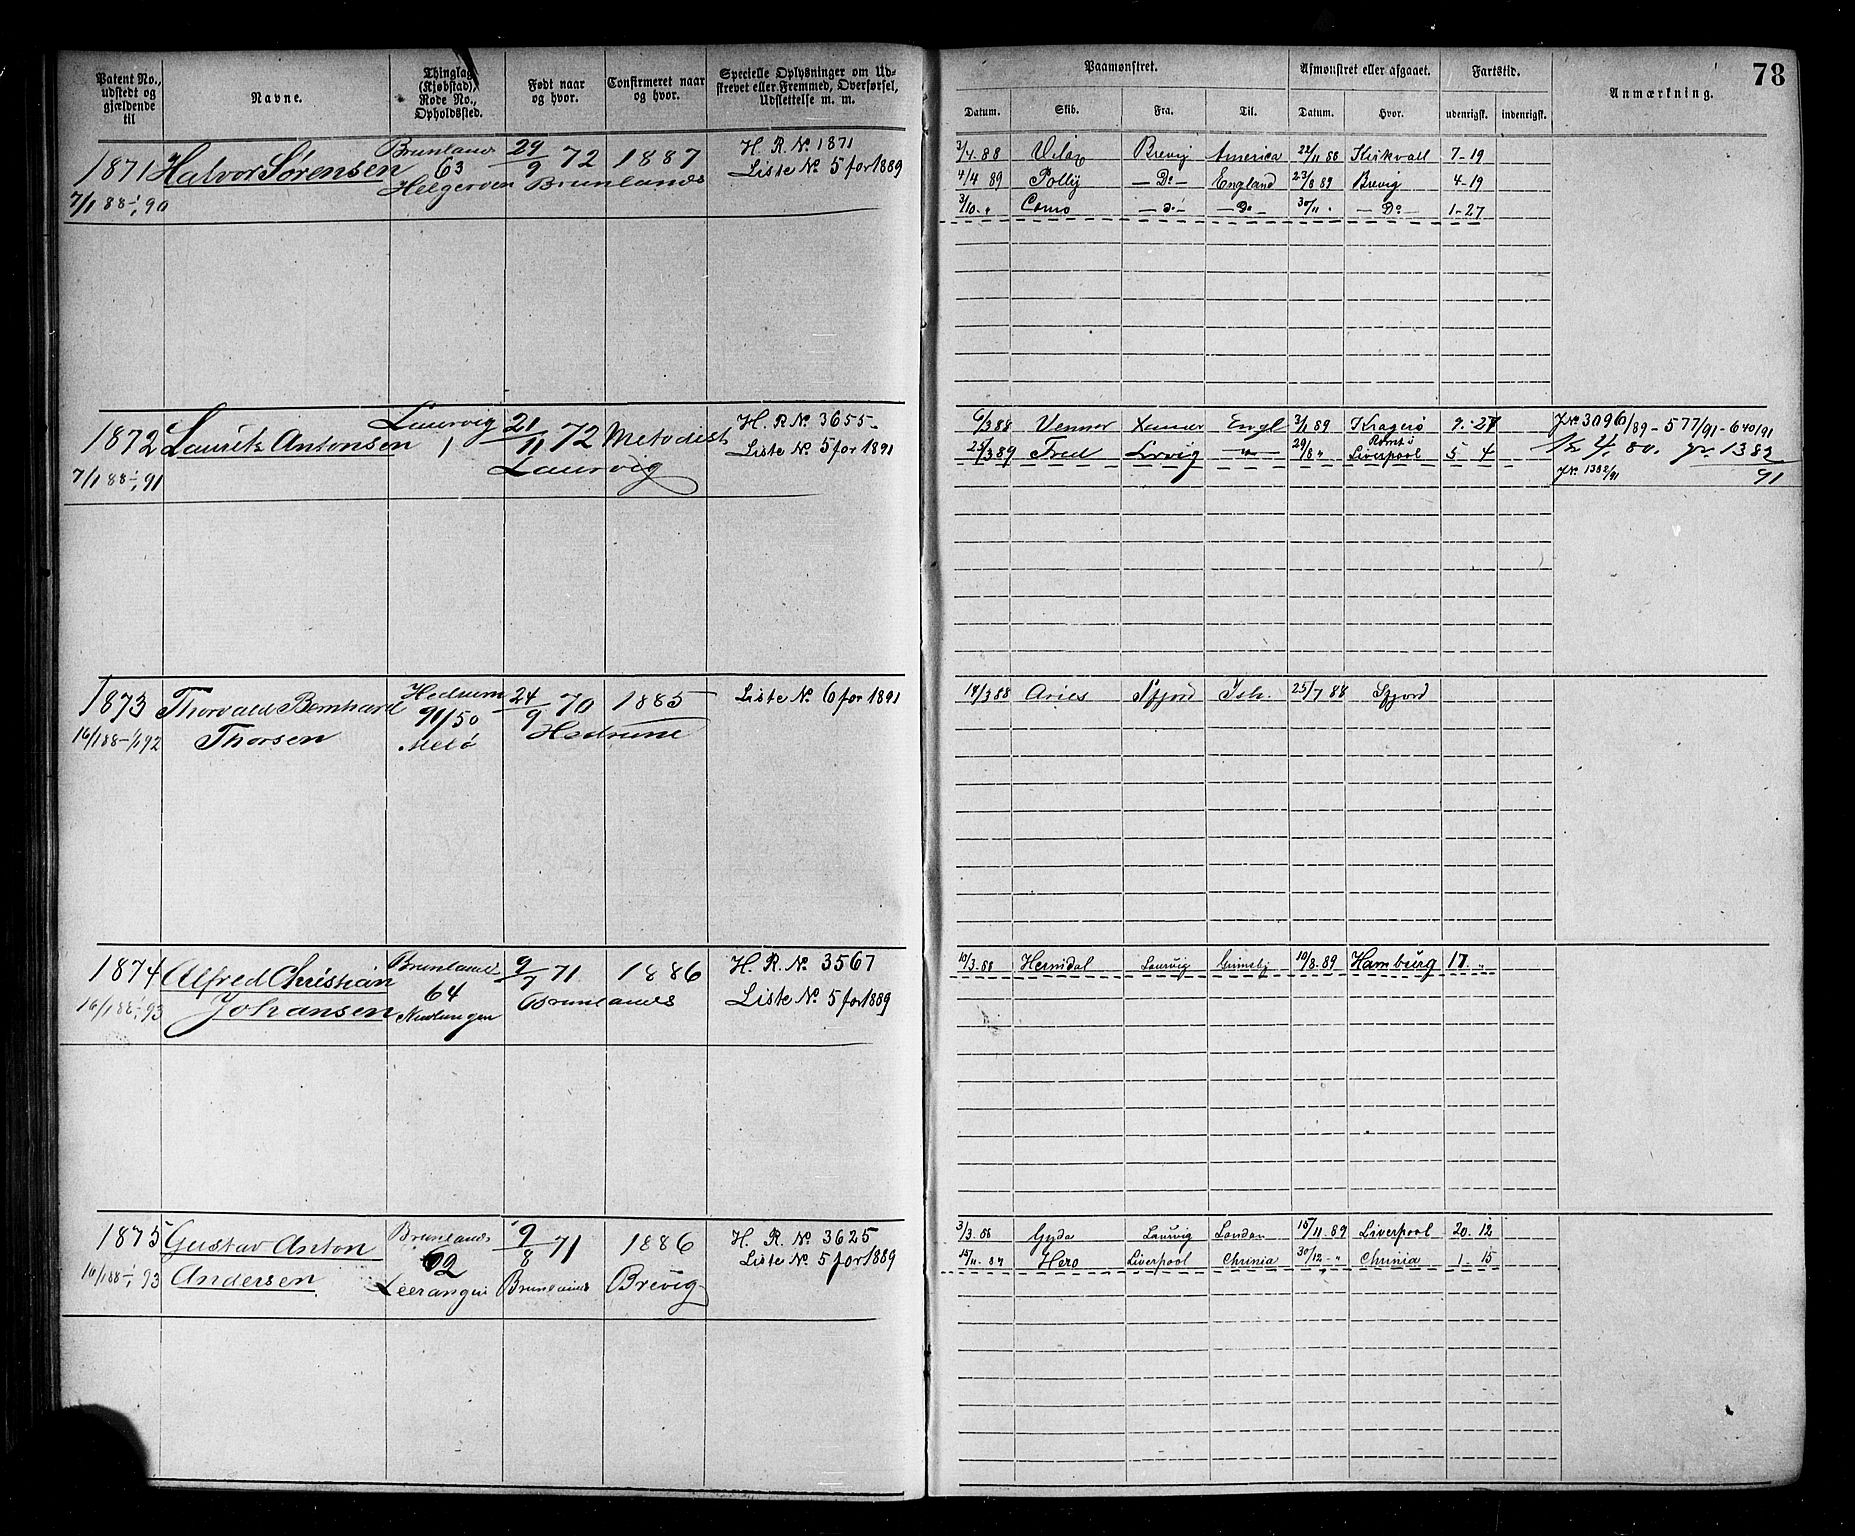 78
Patent No., udstedt og gjældende til
Navne.
Thinglag (Kjøbstad), Rode No., Opholdssted.
Født naar og hvor.
Confirmeret naar og hvor.
Specielle Oplysninger om Udstrevet eller Fremmed, Overførsel, Udslettelse m. m.
Paamønstret.
Afmønstret eller afgaaet.
Fartstid.
Anmærkning.
Datum. Skib. Fra. Til. Datum. Hvor. udenrigst. indenrigst.
1871 Halvor Sørensen Brunlanes 29/9 72 1887 H. R. No 1871
7/1 88 - 1/1 90 63 Helgeroen Brunlanes Liste No 5 for 1889
3/4 88 Brevig America 22/11 88 Kirkvall 7-19
4/4 89 Polly — Do — England 23/8 89 Brevig 4-19
3/10 " Como — d° — — Do — 30/11 " — Do — 1-27
1872 Lauritz Antonsen Laurvig 21/11 72 Metodist H. R No 3655
7/1 88 - 1/1 91 1 Laurvig Liste No 5 for 1891
6/3 88 Engl 3/1 89 Kragerø 9-27 JNo 3096/89 - 577/91 - 640/91
25/3 89 Fred Lrvig — " — 29/8 " Liverpool 5 4 80. Jr. 1382/91
JNo 1382/91
1873 Thorvald Bernhard Thorsen Hedrum 24/9 70 1885 Liste No 6 for 1891
16/1 88 - 1/1 92 91/50 Melø Hedrum
18/3 88 Aries Sfjord Ish. 25/7 88 Sfjord
1874 Alfred Christian Johansen Brunlanes 9/7 71 1886 H. R. No 3567
16/1 88 - 1/1 93 64 Nevlungen Brunlanes Liste No 5 for 1889
10/3 88 Hemdal Laurvig Grimsby 10/8 89 Hamburg 17 "
1875 Gustav Anton Andersen Brunlanes 9/8 71 1886 H. R. No 3625
16/1 88 - 1/1 93 62 Brunlanes Brevig Liste No 5 for 1889
3/3 88 Gyda Laurvig London 15/11 89 Liverpool 20. 12
15/11 89 Hero Liverpool Chrinia 30/12 " Chrinia 1. 15